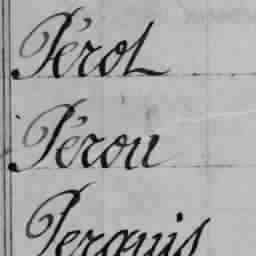 Pérot
Pérou
Perquis